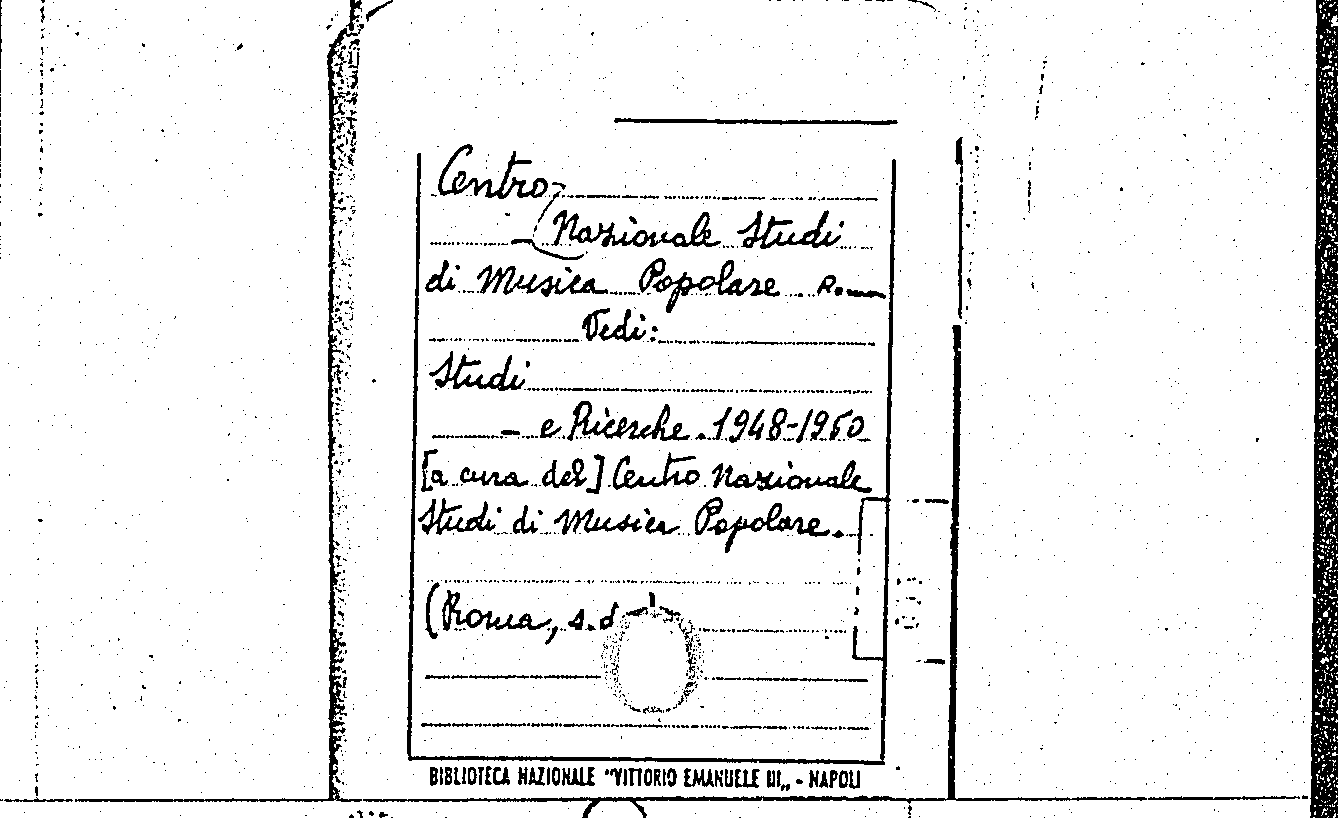 Centro
- Nazionale Studi
di Musica Popolare. Roma
Vedi:
Studi
- e Ricerche. 1948-1960
[a cura del] Centro Nazionale
Studi di Musica Popolare.
(Roma, s.d.
BIBLIOTECA NAZIONALE "VITTORIO EMANUELE III„ - NAPOLI